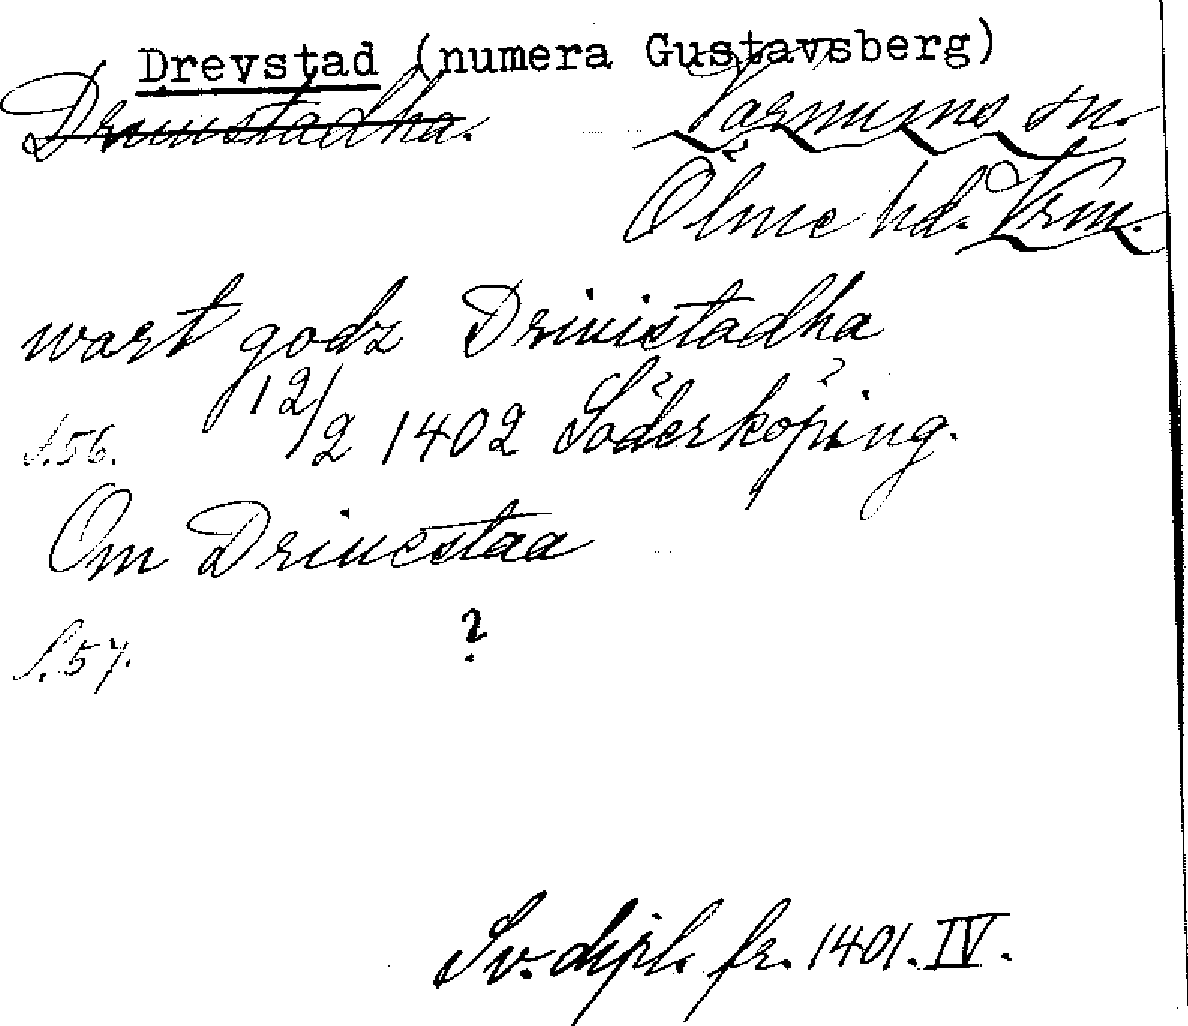 Drevstad (numera Gustavsberg)
Driuistadha. Varnums sn.
Ölme hd. Vrm.
wart godz Driuistadha
12/2 1402 Söderköping.
S. 56.
Om Driuestaa
S. 57. ?
Sv. dipl. fr. 1401. IV.